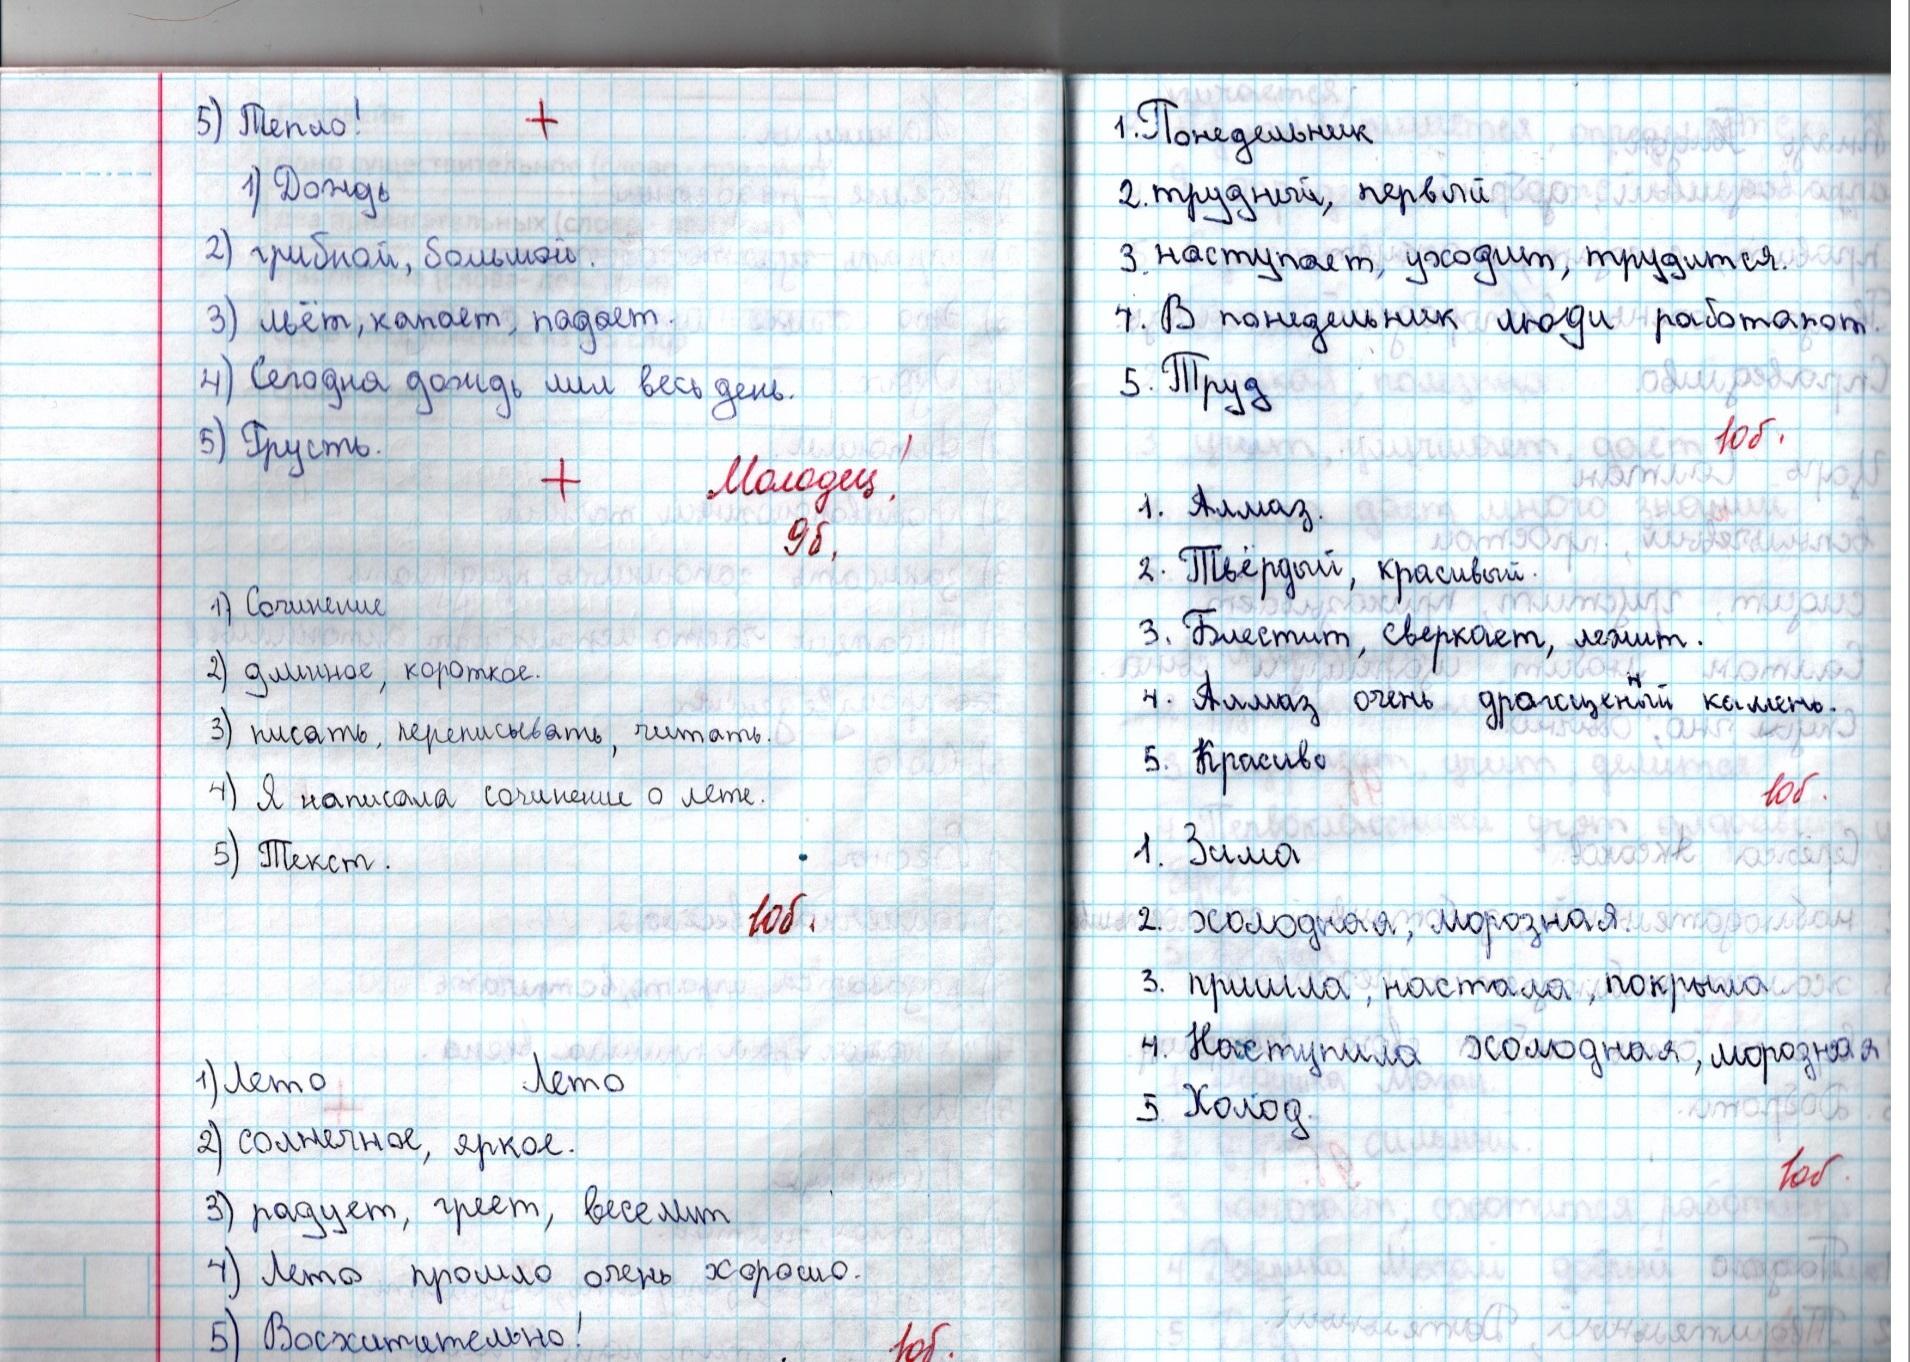 5) Тепло! +
1) Дождь
2) грибной, большой.
3) льёт, капает, падает.
4) Сегодна дождь лил весь день.
5) Грусть.
+ Молодец!
9б.
1) Сочинение
2) длинное, короткое.
3) писать, переписывать, читать.
4) Я написала сочинение о лете.
5) Текст.
10б.
1) Лето Лето
2) солнечное, яркое.
3) радует, греет, веселит
4) Лето прошло очень хорошо.
5) Восхитительно!
10б.
1. Понедельник
2. трудный, первый
3. наступает, уходит, трудится.
4. В понедельник люди работают.
5. Труд
10б.
1. Алмаз.
2. Твёрдый, красивый.
3. Блестит, сверкает, лежит.
4. Алмаз очень драгоценный камень.
5. Красиво
10б.
1. Зима
2. холодная, морозная.
3. пришла, настала, покрыла
4. Наступила холодная, морозная
5. Холод.
10б.